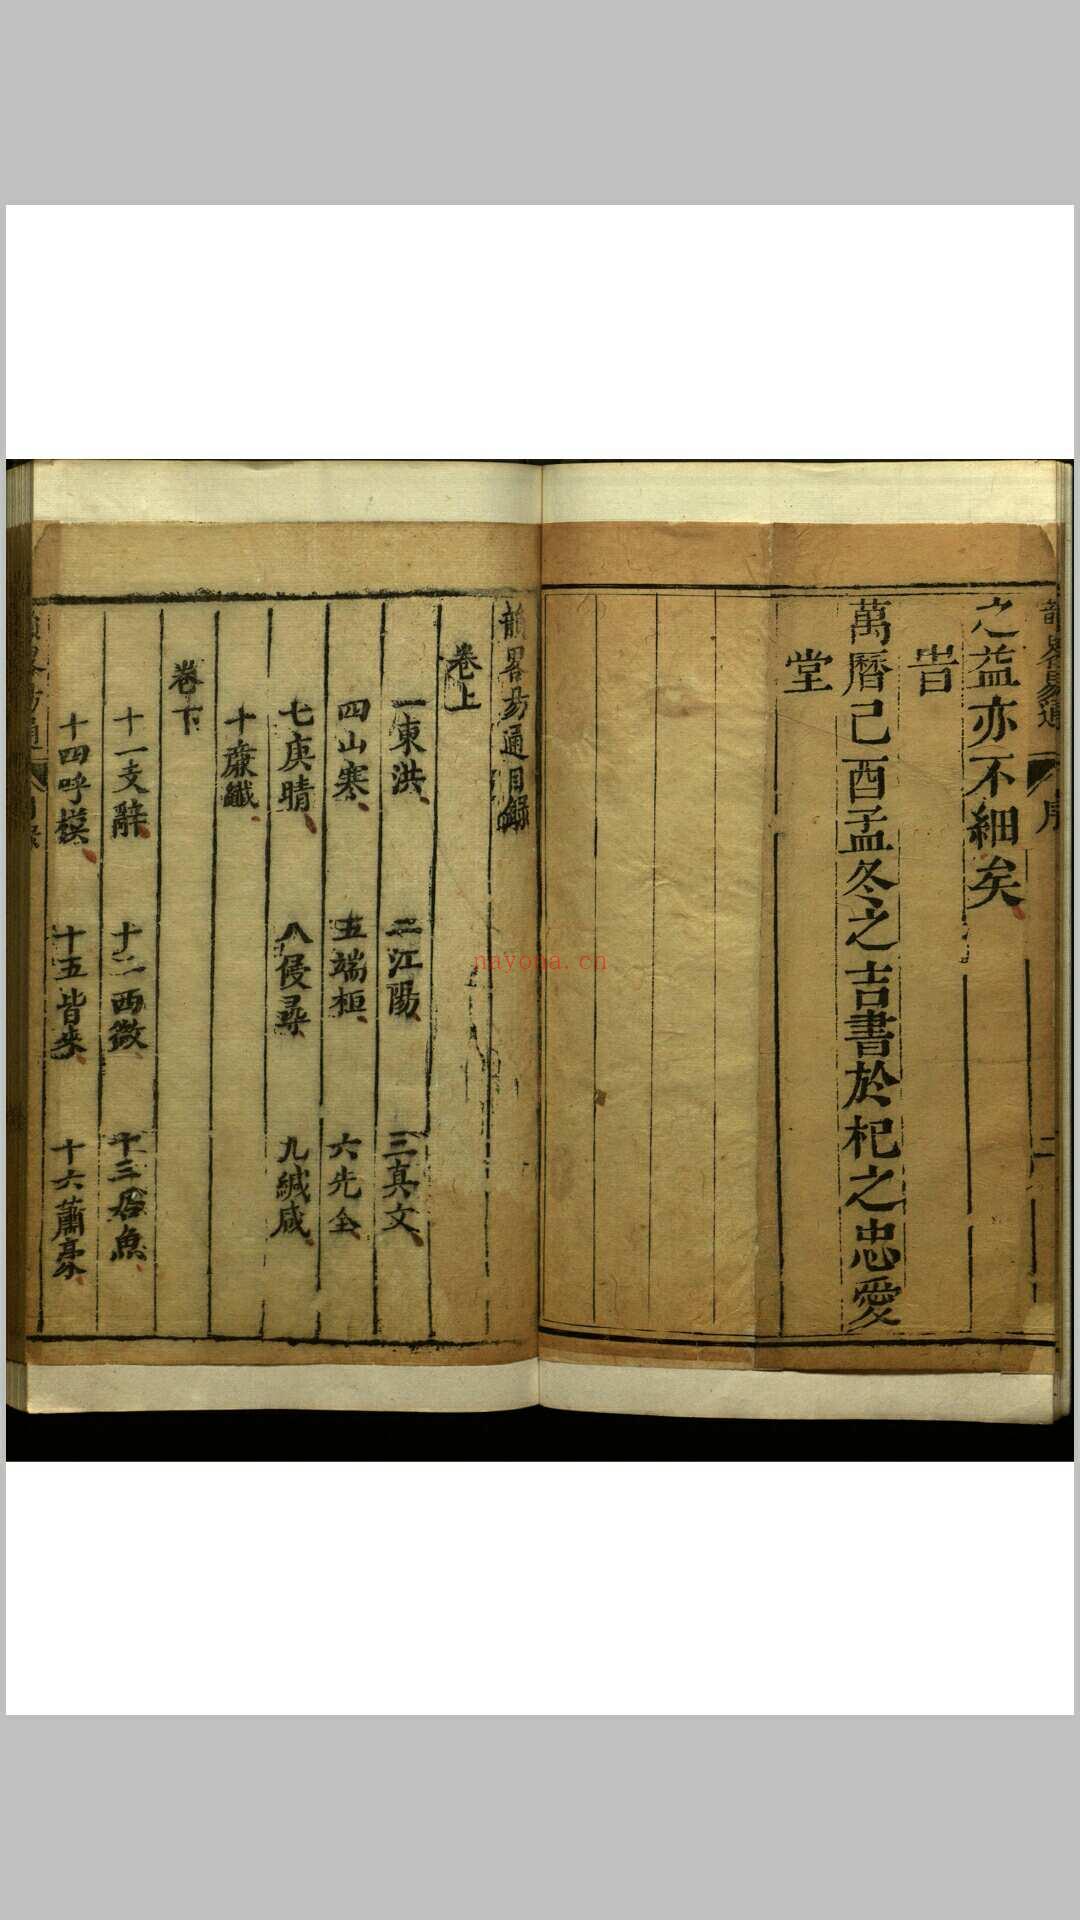 韻畧易通 序 二
之益亦不細矣
旹
萬曆己酉孟冬之吉書於杞之忠愛
堂
韻畧易通目錄
卷上
一東洪 二江陽 三真文
四山寒 五端桓 六先全
七庚晴 八侵尋 九緘咸
十廉纖
卷下
十一支辭 十二西微 十三居魚
十四呼模 十五皆來 十六蕭豪
nayona.cn